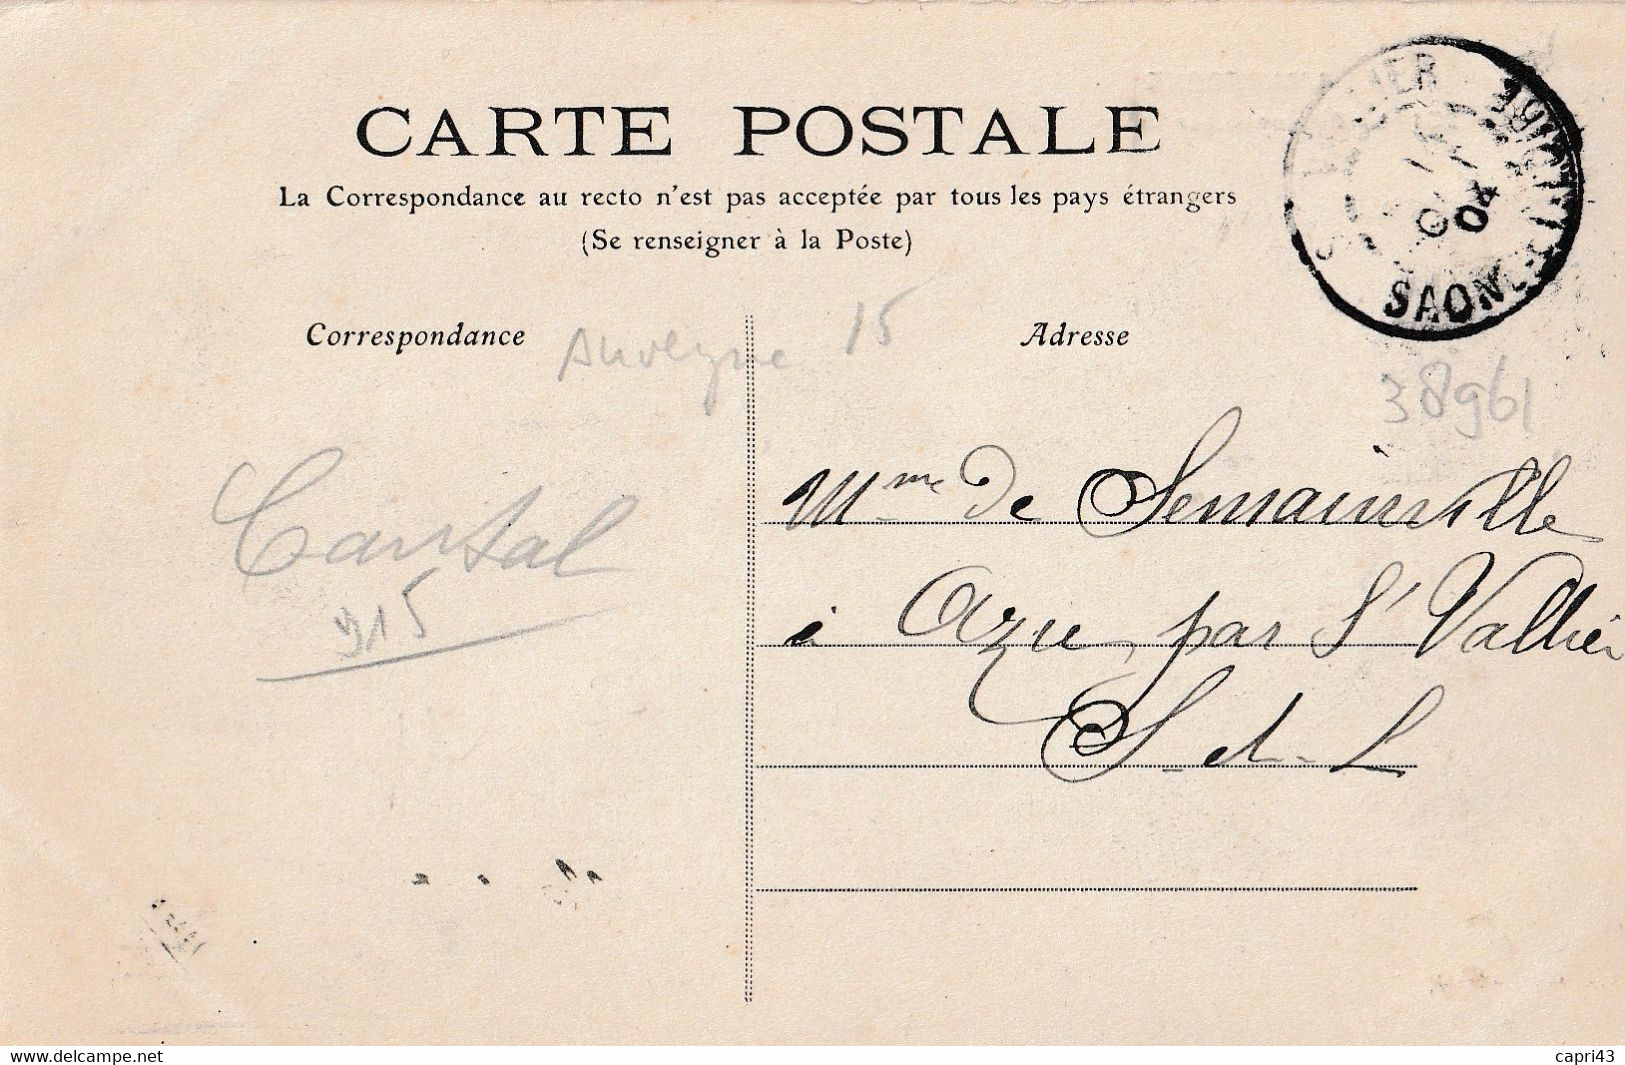 CARTE POSTALE
La Correspondance au recto n'est pas acceptée par tous les pays étrangers
(Se renseigner à la Poste)
SAONE
04
Correspondance
Auvergne 15
Adresse
38961
Cantal
915
Mme De Semainville
à Azu, par St Vallier
S-et-L
www.delcampe.net
capri43